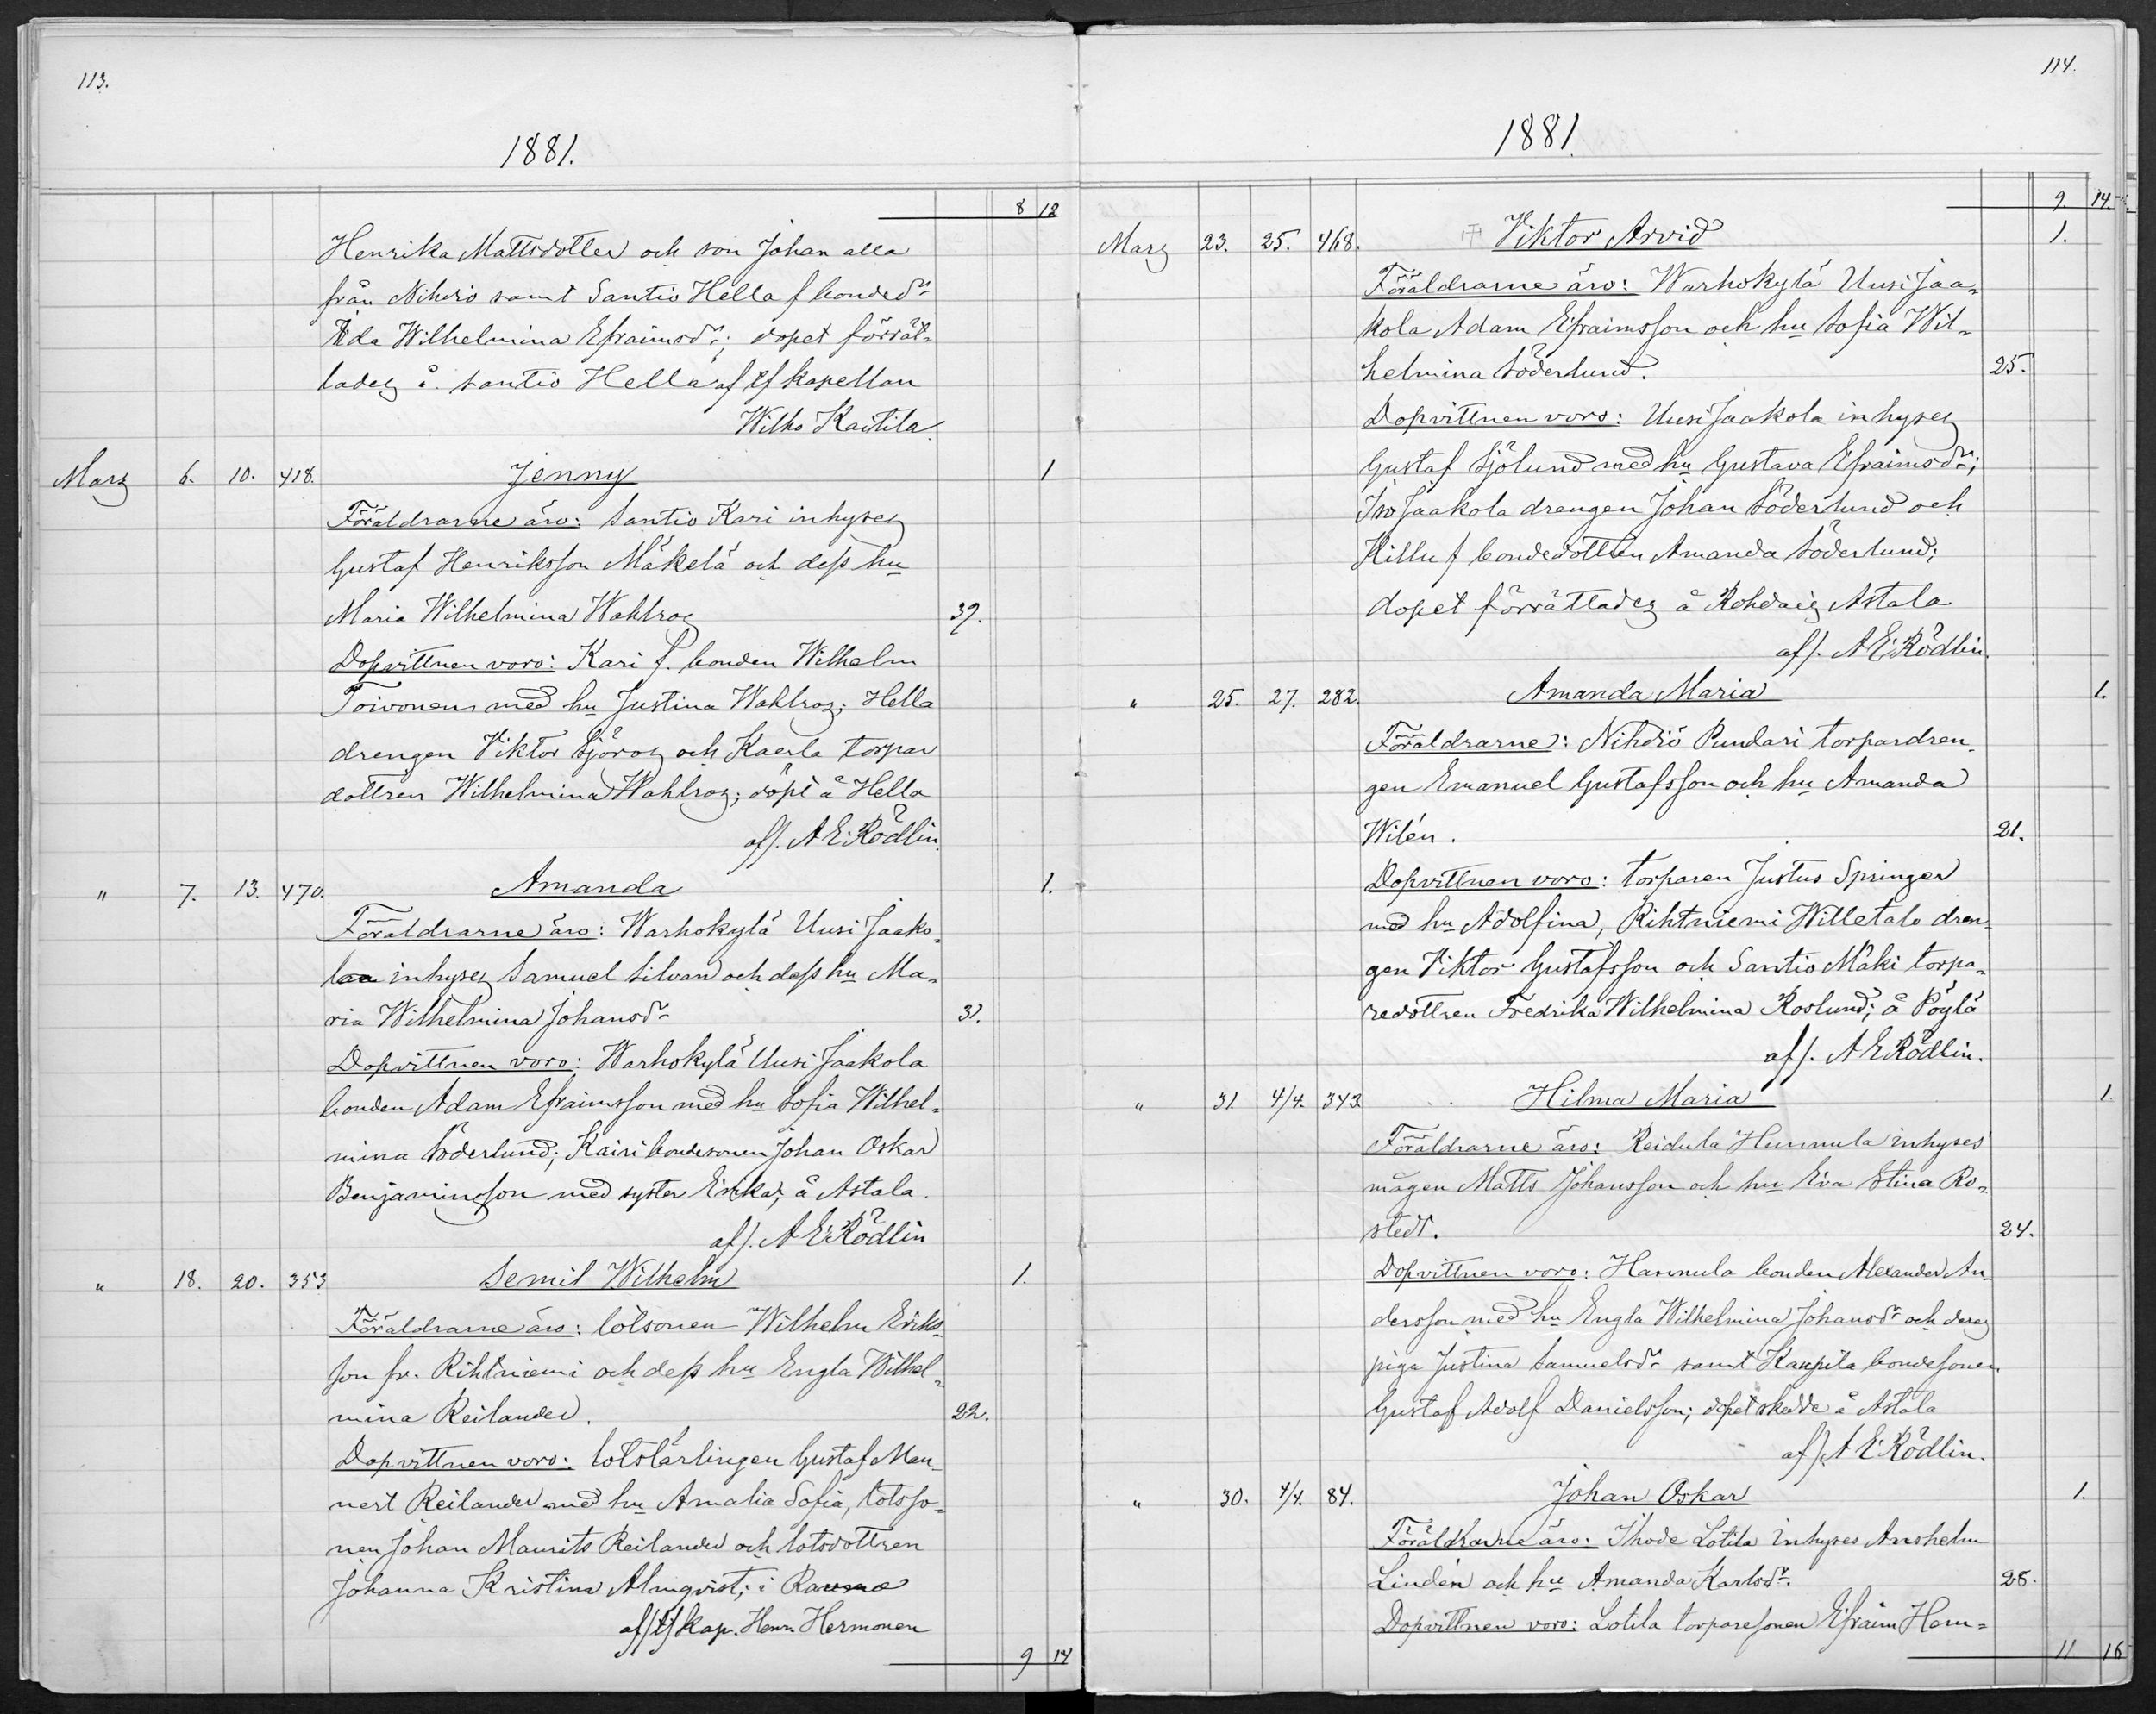 113.
1881.
8 12
Henrika Mattsdotter och son Johan alla
från Nihriö samt Santio Hella f bonded:r
Ida Wilhelmina Efraimsd:r; dopet förrät-
tades å Santio Hella af tf kapellan
Wilho Kaitila
Mars 6. 10. 418. Jenny 1
Föräldrarne äro: Santio Kari inhyses
Gustaf Henriksson Mäkelä och dess hu
Maria Wilhelmina Wahlros 39.
Dopvittnen voro: Kari f. bonden Wilhelm
Toivonen med hu Justina Wahlros; Hella
drengen Viktor Sjöros och Kaerla torpar
dottren Wilhelmina Wahlros; döpt å Hella
af/. A E Rödlin.
" 7. 13. 470. Amanda 1.
Föräldrarne äro: Warhokylä Uusi Jaako-
la inhyses Samuel Silvan och dess hu Ma-
ria Wilhelmina Johansd:r 31.
Dopvittnen voro: Warhokylä Uusi Jaakola
bonden Adam Efraimsson med hu Sofia Wilhel-
mina Söderlund; Kairi bondesonen Johan Oskar
Benjaminsson med syster Erika; å Astala.
af/. A E Rödlin
" 18. 20. 353 Semil Wilhelm 1.
Föräldrarne äro: lotsonen Wilhelm Eriks-
son fr. Rihtniemi och dess hu Engla Wilhel-
mina Reilander. 22.
Dopvittnen voro: lotslärlingen Gustaf Man-
nert Reilander med hu Amalia Sofia, lotsso-
nen Johan Maurits Reilander och lotsdottren
Johanna Kristina Almqvist; i Raumo
af/ tf kap. Henr. Hermonen
9 14
114.
1881.
9. 14.
Mars 23. 25. 468. Viktor Arvid 1.
Föräldrarne äro: Warhokylä Uusi Jaa-
kola Adam Efraimsson och hu Sofia Wil-
helmina Söderlund. 25.
Dopvittnen voro: Uusi Jaakola inhyses
Gustaf Sjölund med hu Gustava Efraimsd:r;
Iso Jaakola drengen Johan Söderlund och
Killu f bondedottren Amanda Söderlund;
dopet förrättades å Rohdais Astala
af/. A E Rödlin.
" 25. 27. 282. Amanda Maria 1.
Föräldrarne: Nihriö Pundari torpardren-
gen Emanuel Gustafsson och hu Amanda
Wilén. 21.
Dopvittnen voro: torparen Justus Springer
med hu Adolfina, Rihtniemi Willetalo dren-
gen Viktor Gustafsson och Santio Mäki torpa-
redottren Fredrika Wilhelmina Roslund; å Pöylä
af/. A E Rödlin.
" 31. 4/4. 343. Hilma Maria 1.
Föräldrarne äro: Reidula Hunnula inhyses
mågen Matts Johansson och hu Eva Stina Ro-
stedt. 24.
Dopvittnen voro: Hannula bonden Alexander An-
dersson med hu Engla Wilhelmina Johansd:r och deras
piga Justina Samuelsd:r samt Kaupila bondesonen
Gustaf Adolf Danielsson; dopet skedde å Astala
af/. A E Rödlin.
" 30. 4/4. 84. Johan Oskar 1.
Föräldrarne äro: Ihode Lotila inhyses Anshelm
Lindén och hu Amanda Karlsd:r. 28.
Dopvittnen voro: Lotila torparesonen Efraim Herm-
11 16